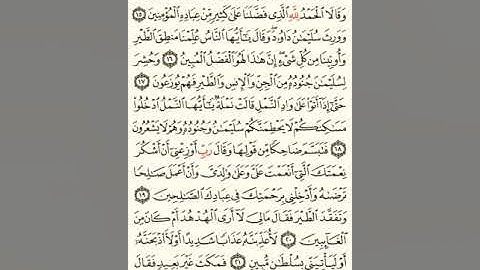 وَقَالَا الْحَمْدُ لِلَّهِ الَّذِي فَضَّلَنَا عَلَىٰ كَثِيرٍ مِّنْ عِبَادِهِ الْمُؤْمِنِينَ ١٥
وَوَرِثَ سُلَيْمَـٰنُ دَاوُودَ وَقَالَ يَـٰٓأَيُّهَا النَّاسُ عُلِّمْنَا مَنطِقَ الطَّيْرِ
وَأُوتِينَا مِن كُلِّ شَيْءٍ إِنَّ هَـٰذَا لَهُوَ الْفَضْلُ الْمُبِينُ ١٦ وَحُشِرَ
لِسُلَيْمَـٰنَ جُنُودُهُ مِنَ الْجِنِّ وَالْإِنسِ وَالطَّيْرِ فَهُمْ يُوزَعُونَ ١٧
حَتَّىٰٓ إِذَآ أَتَوْا عَلَىٰ وَادِ النَّمْلِ قَالَتْ نَمْلَةٌ يَـٰٓأَيُّهَا النَّمْلُ ادْخُلُوا
مَسَـٰكِنَكُمْ لَا يَحْطِمَنَّكُمْ سُلَيْمَـٰنُ وَجُنُودُهُ وَهُمْ لَا يَشْعُرُونَ
١٨ فَتَبَسَّمَ ضَاحِكًا مِّن قَوْلِهَا وَقَالَ رَبِّ أَوْزِعْنِيٓ أَنْ أَشْكُرَ
نِعْمَتَكَ الَّتِيٓ أَنْعَمْتَ عَلَيَّ وَعَلَىٰ وَالِدَيَّ وَأَنْ أَعْمَلَ صَـٰلِحًا
تَرْضَىٰهُ وَأَدْخِلْنِي بِرَحْمَتِكَ فِي عِبَادِكَ الصَّـٰلِحِينَ ١٩
وَتَفَقَّدَ الطَّيْرَ فَقَالَ مَالِيَ لَآ أَرَى الْهُدْهُدَ أَمْ كَانَ مِنَ
الْغَآئِبِينَ ٢٠ لَأُعَذِّبَنَّهُ عَذَابًا شَدِيدًا أَوْ لَأَاذْبَحَنَّهُ
أَوْ لَيَأْتِيَنِّي بِسُلْطَـٰنٍ مُّبِينٍ ٢١ فَمَكَثَ غَيْرَ بَعِيدٍ فَقَالَ